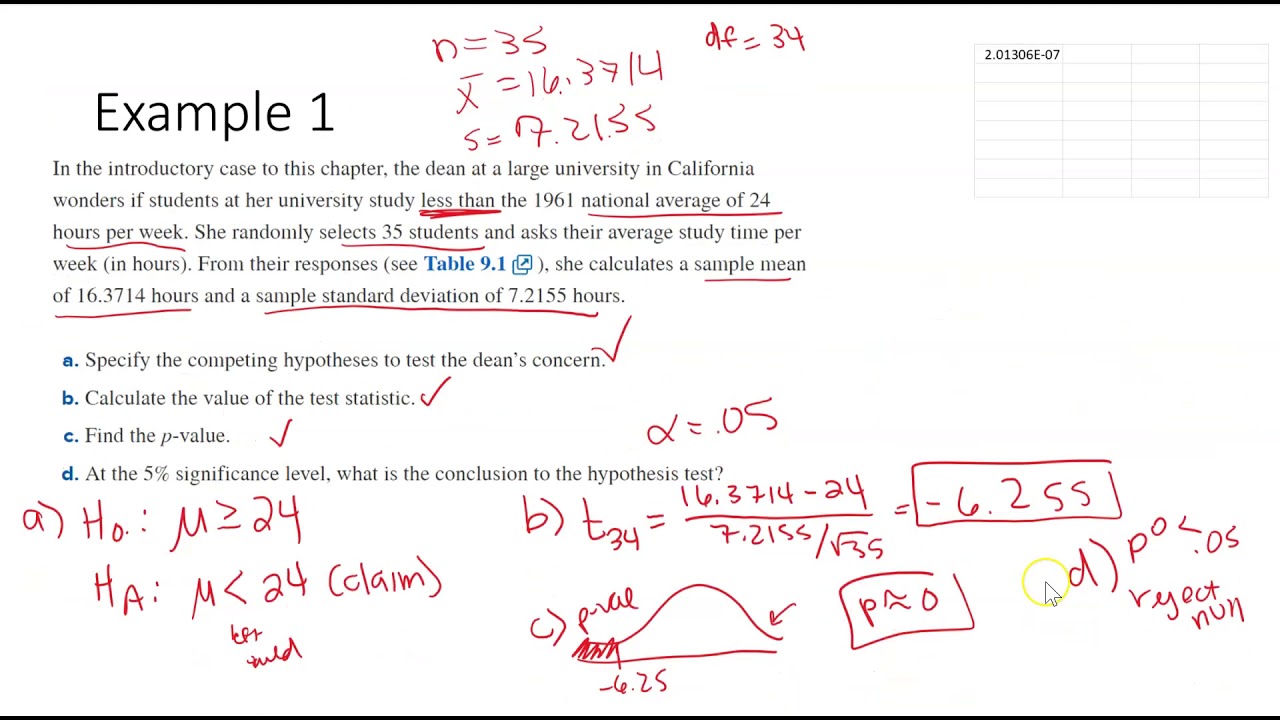 n=35
df=34
x̄=16.3714
s=7.2155
2.01306E-07
Example 1
In the introductory case to this chapter, the dean at a large university in California
wonders if students at her university study less than the 1961 national average of 24
hours per week. She randomly selects 35 students and asks their average study time per
week (in hours). From their responses (see Table 9.1 ), she calculates a sample mean
of 16.3714 hours and a sample standard deviation of 7.2155 hours.
a. Specify the competing hypotheses to test the dean's concern. ✓
b. Calculate the value of the test statistic. ✓
c. Find the p-value. ✓
α=.05
d. At the 5% significance level, what is the conclusion to the hypothesis test?
a) H₀: μ≥24
H_A: μ<24 (claim)
b) t₃₄ = 16.3714-24 / 7.2155/√35 = -6.255
c) p-val
-6.25
p≈0
d) p⁰<.05
reject
null